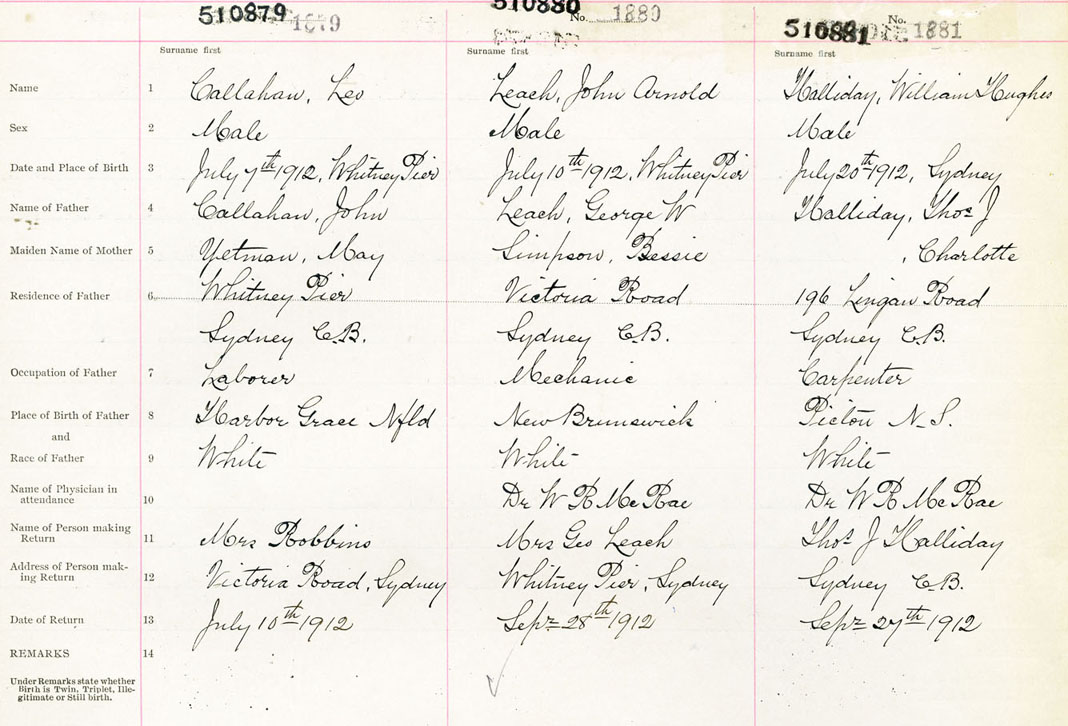 510879 1879 510880 No. 1880 510881 No. 1881
Surname first Surname first Surname first
Name 1 Callahan, Leo Leach, John Arnold Halliday, William Hughes
Sex 2 Male Male Male
Date and Place of Birth 3 July 7th 1912, Whitney Pier July 10th 1912, Whitney Pier July 20th 1912, Sydney
Name of Father 4 Callahan, John Leach, George W Halliday, Thos J
Maiden Name of Mother 5 Yetman, May Simpson, Bessie , Charlotte
Residence of Father 6 Whitney Pier Victoria Road 196 Lingan Road
Sydney C.B. Sydney C.B. Sydney C.B.
Occupation of Father 7 Laborer Mechanic Carpenter
Place of Birth of Father 8 Harbor Grace Nfld New Brunswick Pictou N.S.
and
Race of Father 9 White White White
Name of Physician in
attendance 10 Dr W R McRae Dr W R McRae
Name of Person making
Return 11 Mrs Robbins Mrs Geo Leach Thos J Halliday
Address of Person mak-
ing Return 12 Victoria Road, Sydney Whitney Pier, Sydney Sydney C.B.
Date of Return 13 July 10th 1912 Sept 28th 1912 Sept 27th 1912
REMARKS 14
Under Remarks state whether
Birth is Twin, Triplet, Ille-
gitimate or Still birth.